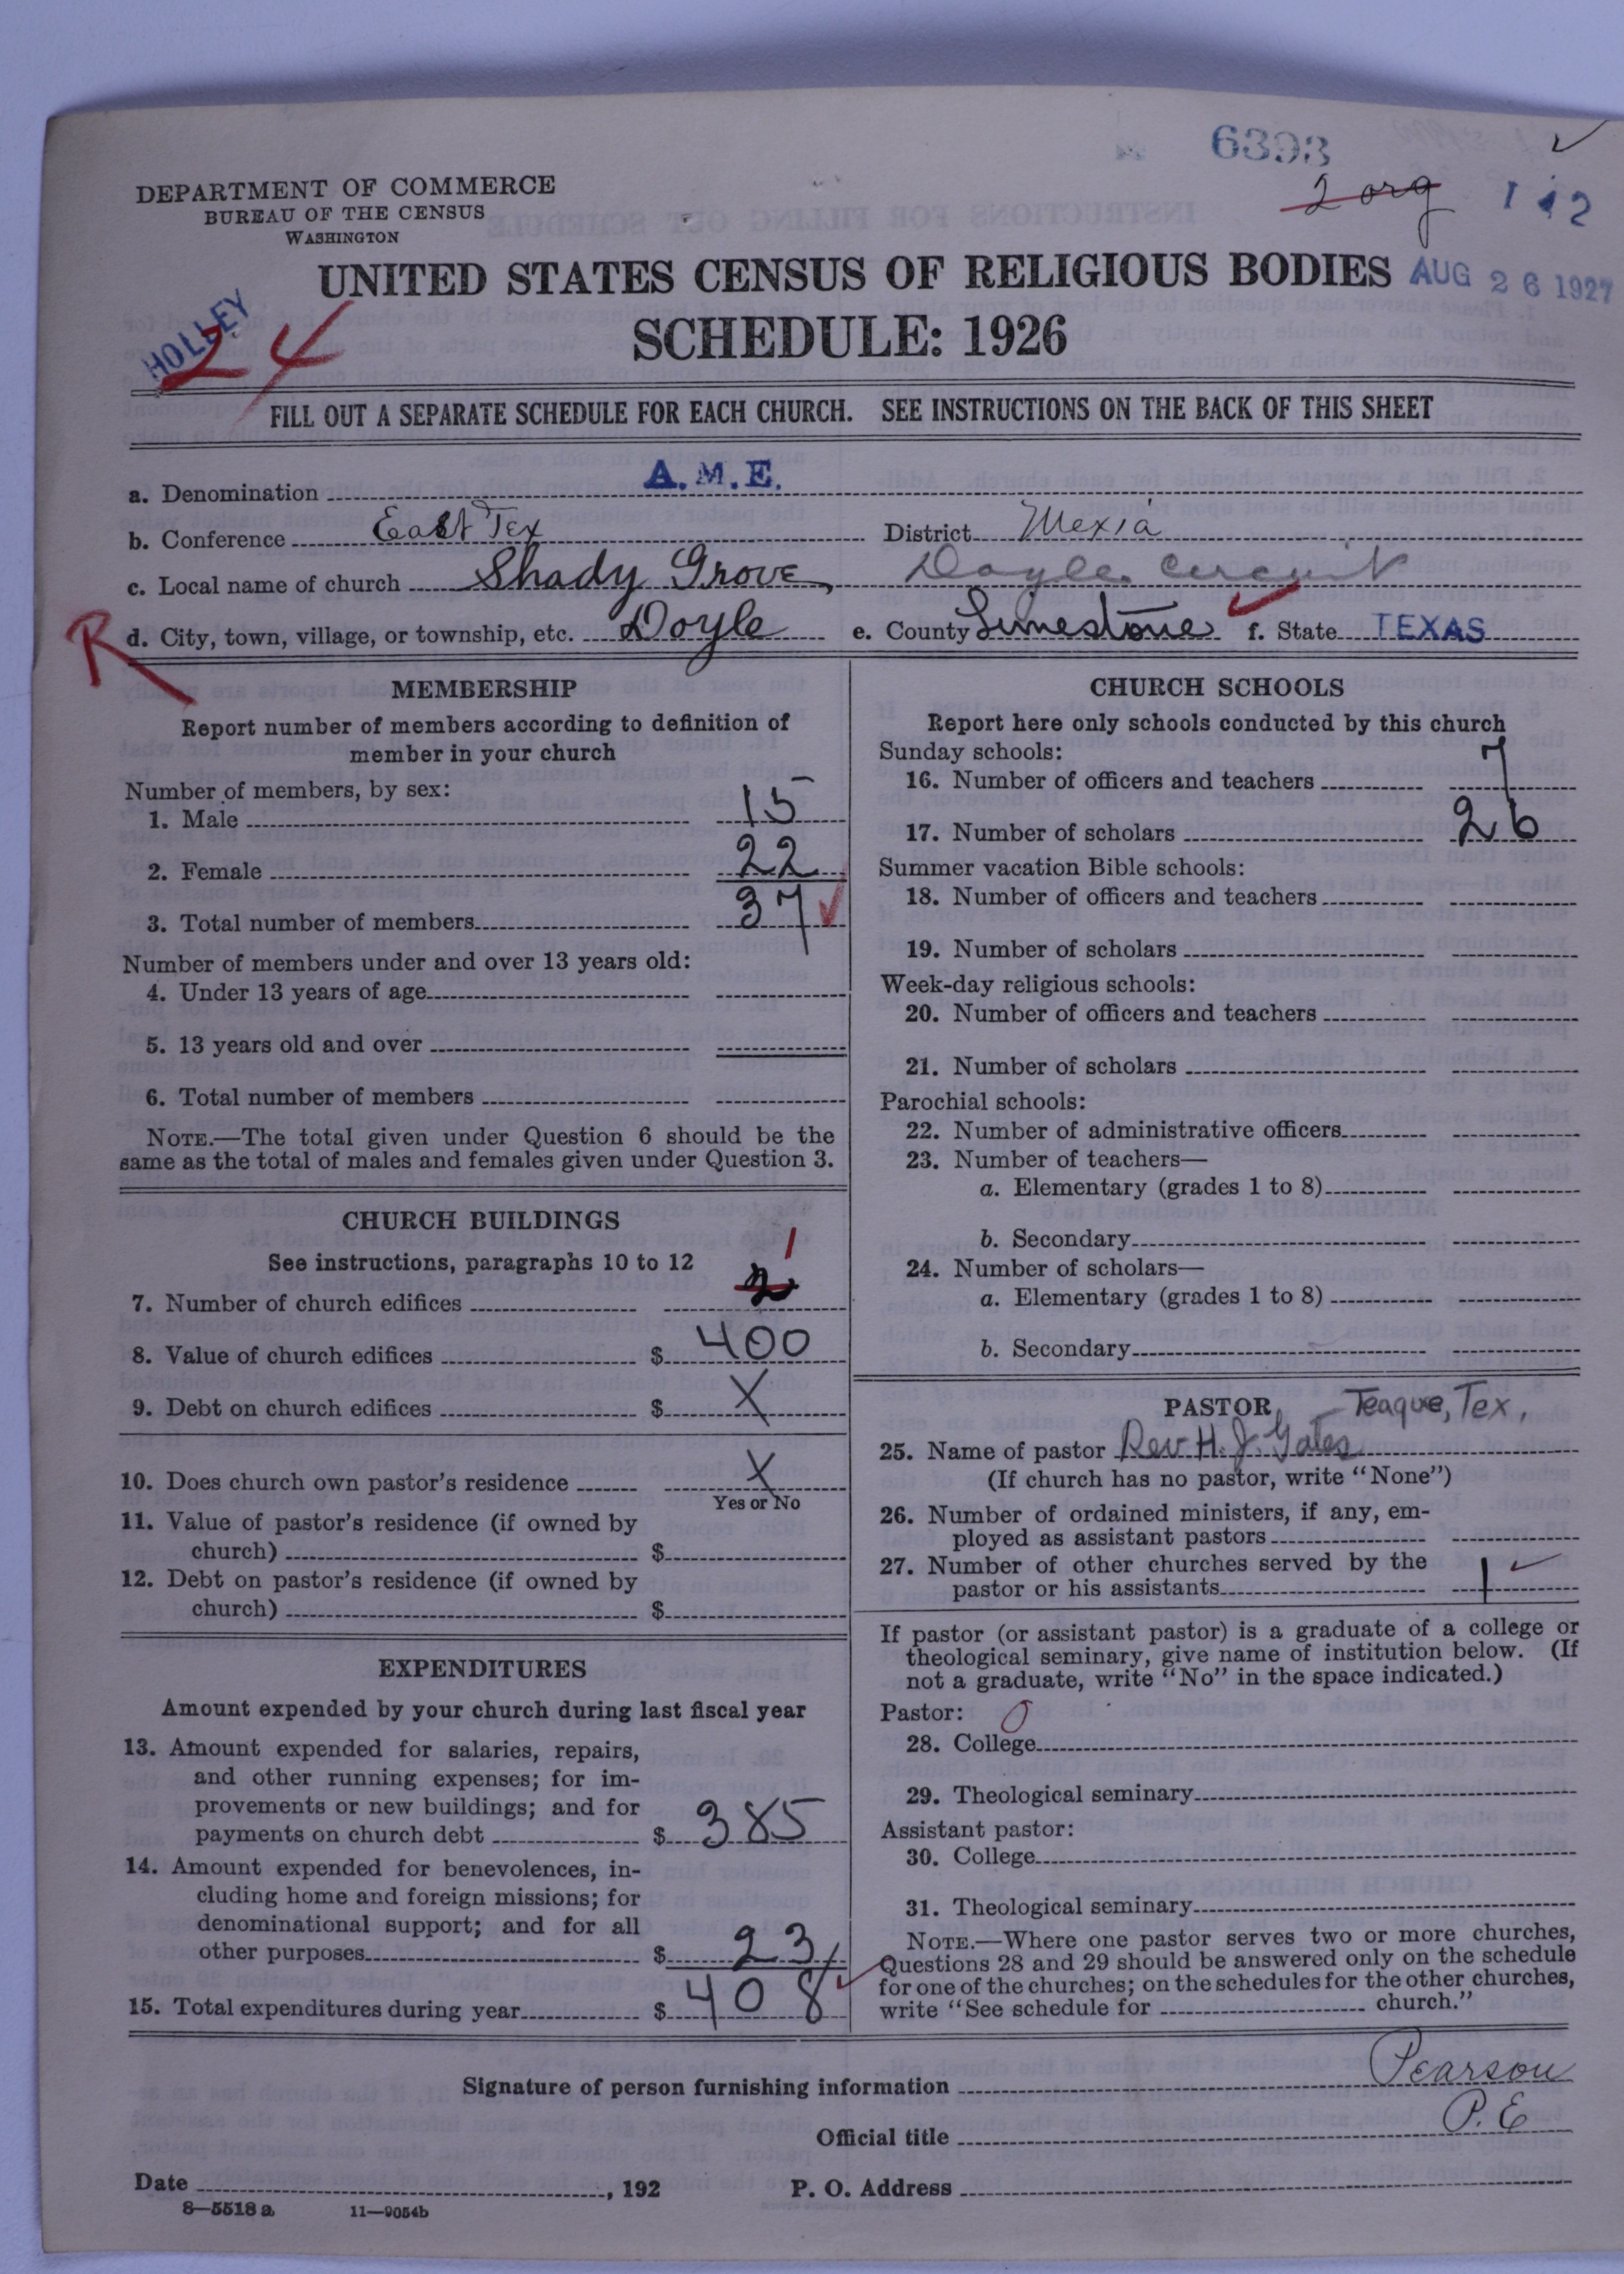 6393
2 org 1 42
DEPARTMENT OF COMMERCE
BUREAU OF THE CENSUS
WASHINGTON
UNITED STATES CENSUS OF RELIGIOUS BODIES AUG 26 1927
SCHEDULE: 1926
HOLLEY
24
FILL OUT A SEPARATE SCHEDULE FOR EACH CHURCH. SEE INSTRUCTIONS ON THE BACK OF THIS SHEET
a. Denomination A.M.E.
b. Conference East Tex District Mexia
c. Local name of church Shady Grove, Doyle Circuit
R
d. City, town, village, or township, etc. Doyle e. County Limestone f. State TEXAS
MEMBERSHIP
Report number of members according to definition of
member in your church
Number of members, by sex:
1. Male 15
2. Female 22
3. Total number of members 37
Number of members under and over 13 years old:
4. Under 13 years of age
5. 13 years old and over
6. Total number of members
NOTE.—The total given under Question 6 should be the
same as the total of males and females given under Question 3.
CHURCH BUILDINGS
See instructions, paragraphs 10 to 12
1
7. Number of church edifices 2
8. Value of church edifices $ 400
9. Debt on church edifices $ X
10. Does church own pastor's residence X
Yes or No
11. Value of pastor's residence (if owned by
church) $
12. Debt on pastor's residence (if owned by
church) $
EXPENDITURES
Amount expended by your church during last fiscal year
13. Amount expended for salaries, repairs,
and other running expenses; for im-
provements or new buildings; and for
payments on church debt $ 385
14. Amount expended for benevolences, in-
cluding home and foreign missions; for
denominational support; and for all
other purposes $ 23
15. Total expenditures during year $ 408
CHURCH SCHOOLS
Report here only schools conducted by this church
Sunday schools:
16. Number of officers and teachers 7
17. Number of scholars 26
Summer vacation Bible schools:
18. Number of officers and teachers
19. Number of scholars
Week-day religious schools:
20. Number of officers and teachers
21. Number of scholars
Parochial schools:
22. Number of administrative officers
23. Number of teachers—
a. Elementary (grades 1 to 8)
b. Secondary
24. Number of scholars—
a. Elementary (grades 1 to 8)
b. Secondary
PASTOR Teague, Tex,
25. Name of pastor Rev. H. J. Gates
(If church has no pastor, write "None")
26. Number of ordained ministers, if any, em-
ployed as assistant pastors
27. Number of other churches served by the
pastor or his assistants 1
If pastor (or assistant pastor) is a graduate of a college or
theological seminary, give name of institution below. (If
not a graduate, write "No" in the space indicated.)
Pastor: 0
28. College
29. Theological seminary
Assistant pastor:
30. College
31. Theological seminary
NOTE.—Where one pastor serves two or more churches,
Questions 28 and 29 should be answered only on the schedule
for one of the churches; on the schedules for the other churches,
write "See schedule for church."
Signature of person furnishing information Pearson
Official title P. E
Date , 192 P. O. Address
8—5518 a 11—9054b